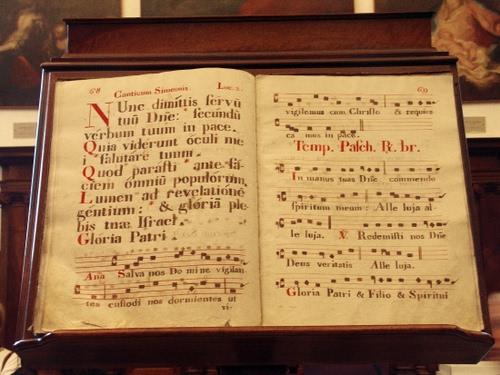 68 Canticum Simeonis. Luc. 2.
NUnc dimittis servũ
tuũ Dñe: * secundũ
verbum tuum in pace.
Quia viderunt oculi me
i * salutare tuum.
Quod parasti * ante fá-
ciem omniũ populórum.
Lumen ad revelatiónẽ
géntium: * & glóriã ple
bis tuæ Israel.
Gloria Patri.
Ana Salva nos Domine vigilan
tes custodi nos dormientes ut
vi-
69
vigilemus cum Christo & requies
ca mus in pace.
Temp. Pasch. R. br.
In manus tuas Dñe commendo
spiritum meum: Alle luja al-
le luja. V. Redemisti nos Dñe
Deus veritatis Alle luja.
Gloria Patri & Filio & Spiritui